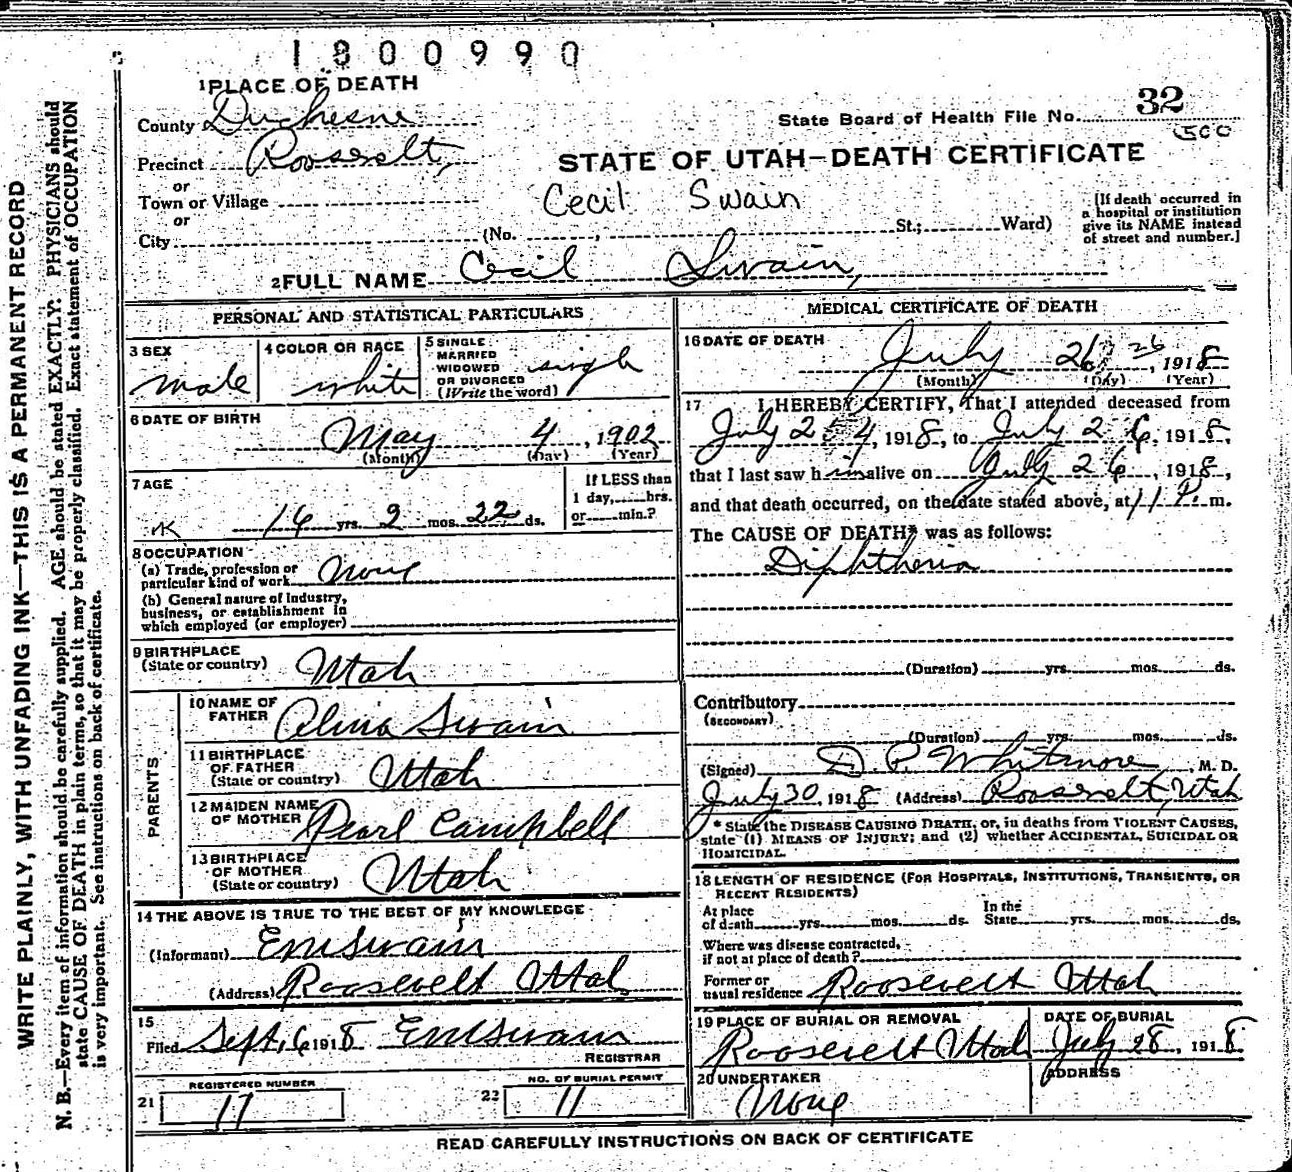 1800990
1 PLACE OF DEATH
County Duchesne
32
State Board of Health File No.
500
Precinct Roosevelt,
STATE OF UTAH—DEATH CERTIFICATE
or
Town or Village
Cecil Swain
or
City (No. , St.; Ward)
[If death occurred in
a hospital or institution
give its NAME instead
of street and number.]
2 FULL NAME Cecil Swain,
PERSONAL AND STATISTICAL PARTICULARS
3 SEX
male
4 COLOR OR RACE
white
5 SINGLE
MARRIED
WIDOWED
OR DIVORCED
(Write the word)
single
6 DATE OF BIRTH
May 4, 1902
(Month) (Day) (Year)
7 AGE
16 yrs. 2 mos. 22 ds.
If LESS than
1 day, hrs.
or min.?
8 OCCUPATION
(a) Trade, profession or
particular kind of work None
(b) General nature of industry,
business, or establishment in
which employed (or employer)
9 BIRTHPLACE
(State or country) Utah
PARENTS
10 NAME OF
FATHER Alma Swain
11 BIRTHPLACE
OF FATHER
(State or country) Utah
12 MAIDEN NAME
OF MOTHER Pearl Campbell
13 BIRTHPLACE
OF MOTHER
(State or country) Utah
14 THE ABOVE IS TRUE TO THE BEST OF MY KNOWLEDGE
(Informant) EmSwain
(Address) Roosevelt Utah
15
Filed Sept, 6 1918 EmSwain
REGISTRAR
REGISTERED NUMBER
21 17
NO. OF BURIAL PERMIT
22 11
MEDICAL CERTIFICATE OF DEATH
16 DATE OF DEATH
July 26 26, 1918
(Month) (Day) (Year)
17 I HEREBY CERTIFY, That I attended deceased from
July 25 4, 1918, to July 26, 1918,
that I last saw him alive on July 26, 1918,
and that death occurred, on the date stated above, at 11 P. m.
The CAUSE OF DEATH* was as follows:
Diphtheria
(Duration) yrs. mos. ds.
Contributory
(SECONDARY)
(Duration) yrs. mos. ds.
(Signed) D. P. Whitmore, M. D.
July 30, 1918 (Address) Roosevelt, Utah
* State the DISEASE CAUSING DEATH, or, in deaths from VIOLENT CAUSES,
state (1) MEANS OF INJURY; and (2) whether ACCIDENTAL, SUICIDAL OR
HOMICIDAL.
18 LENGTH OF RESIDENCE (FOR HOSPITALS, INSTITUTIONS, TRANSIENTS, OR
RECENT RESIDENTS)
At place
of death yrs. mos. ds.
In the
State yrs. mos. ds.
Where was disease contracted,
if not at place of death?
Former or
usual residence Roosevelt Utah
19 PLACE OF BURIAL OR REMOVAL
Roosevelt Utah
DATE OF BURIAL
July 28, 1918
20 UNDERTAKER
None
ADDRESS
READ CAREFULLY INSTRUCTIONS ON BACK OF CERTIFICATE
WRITE PLAINLY, WITH UNFADING INK—THIS IS A PERMANENT RECORD
N. B.—Every item of information should be carefully supplied. AGE should be stated EXACTLY. PHYSICIANS should
state CAUSE OF DEATH in plain terms, so that it may be properly classified. Exact statement of OCCUPATION
is very important. See instructions on back of certificate.